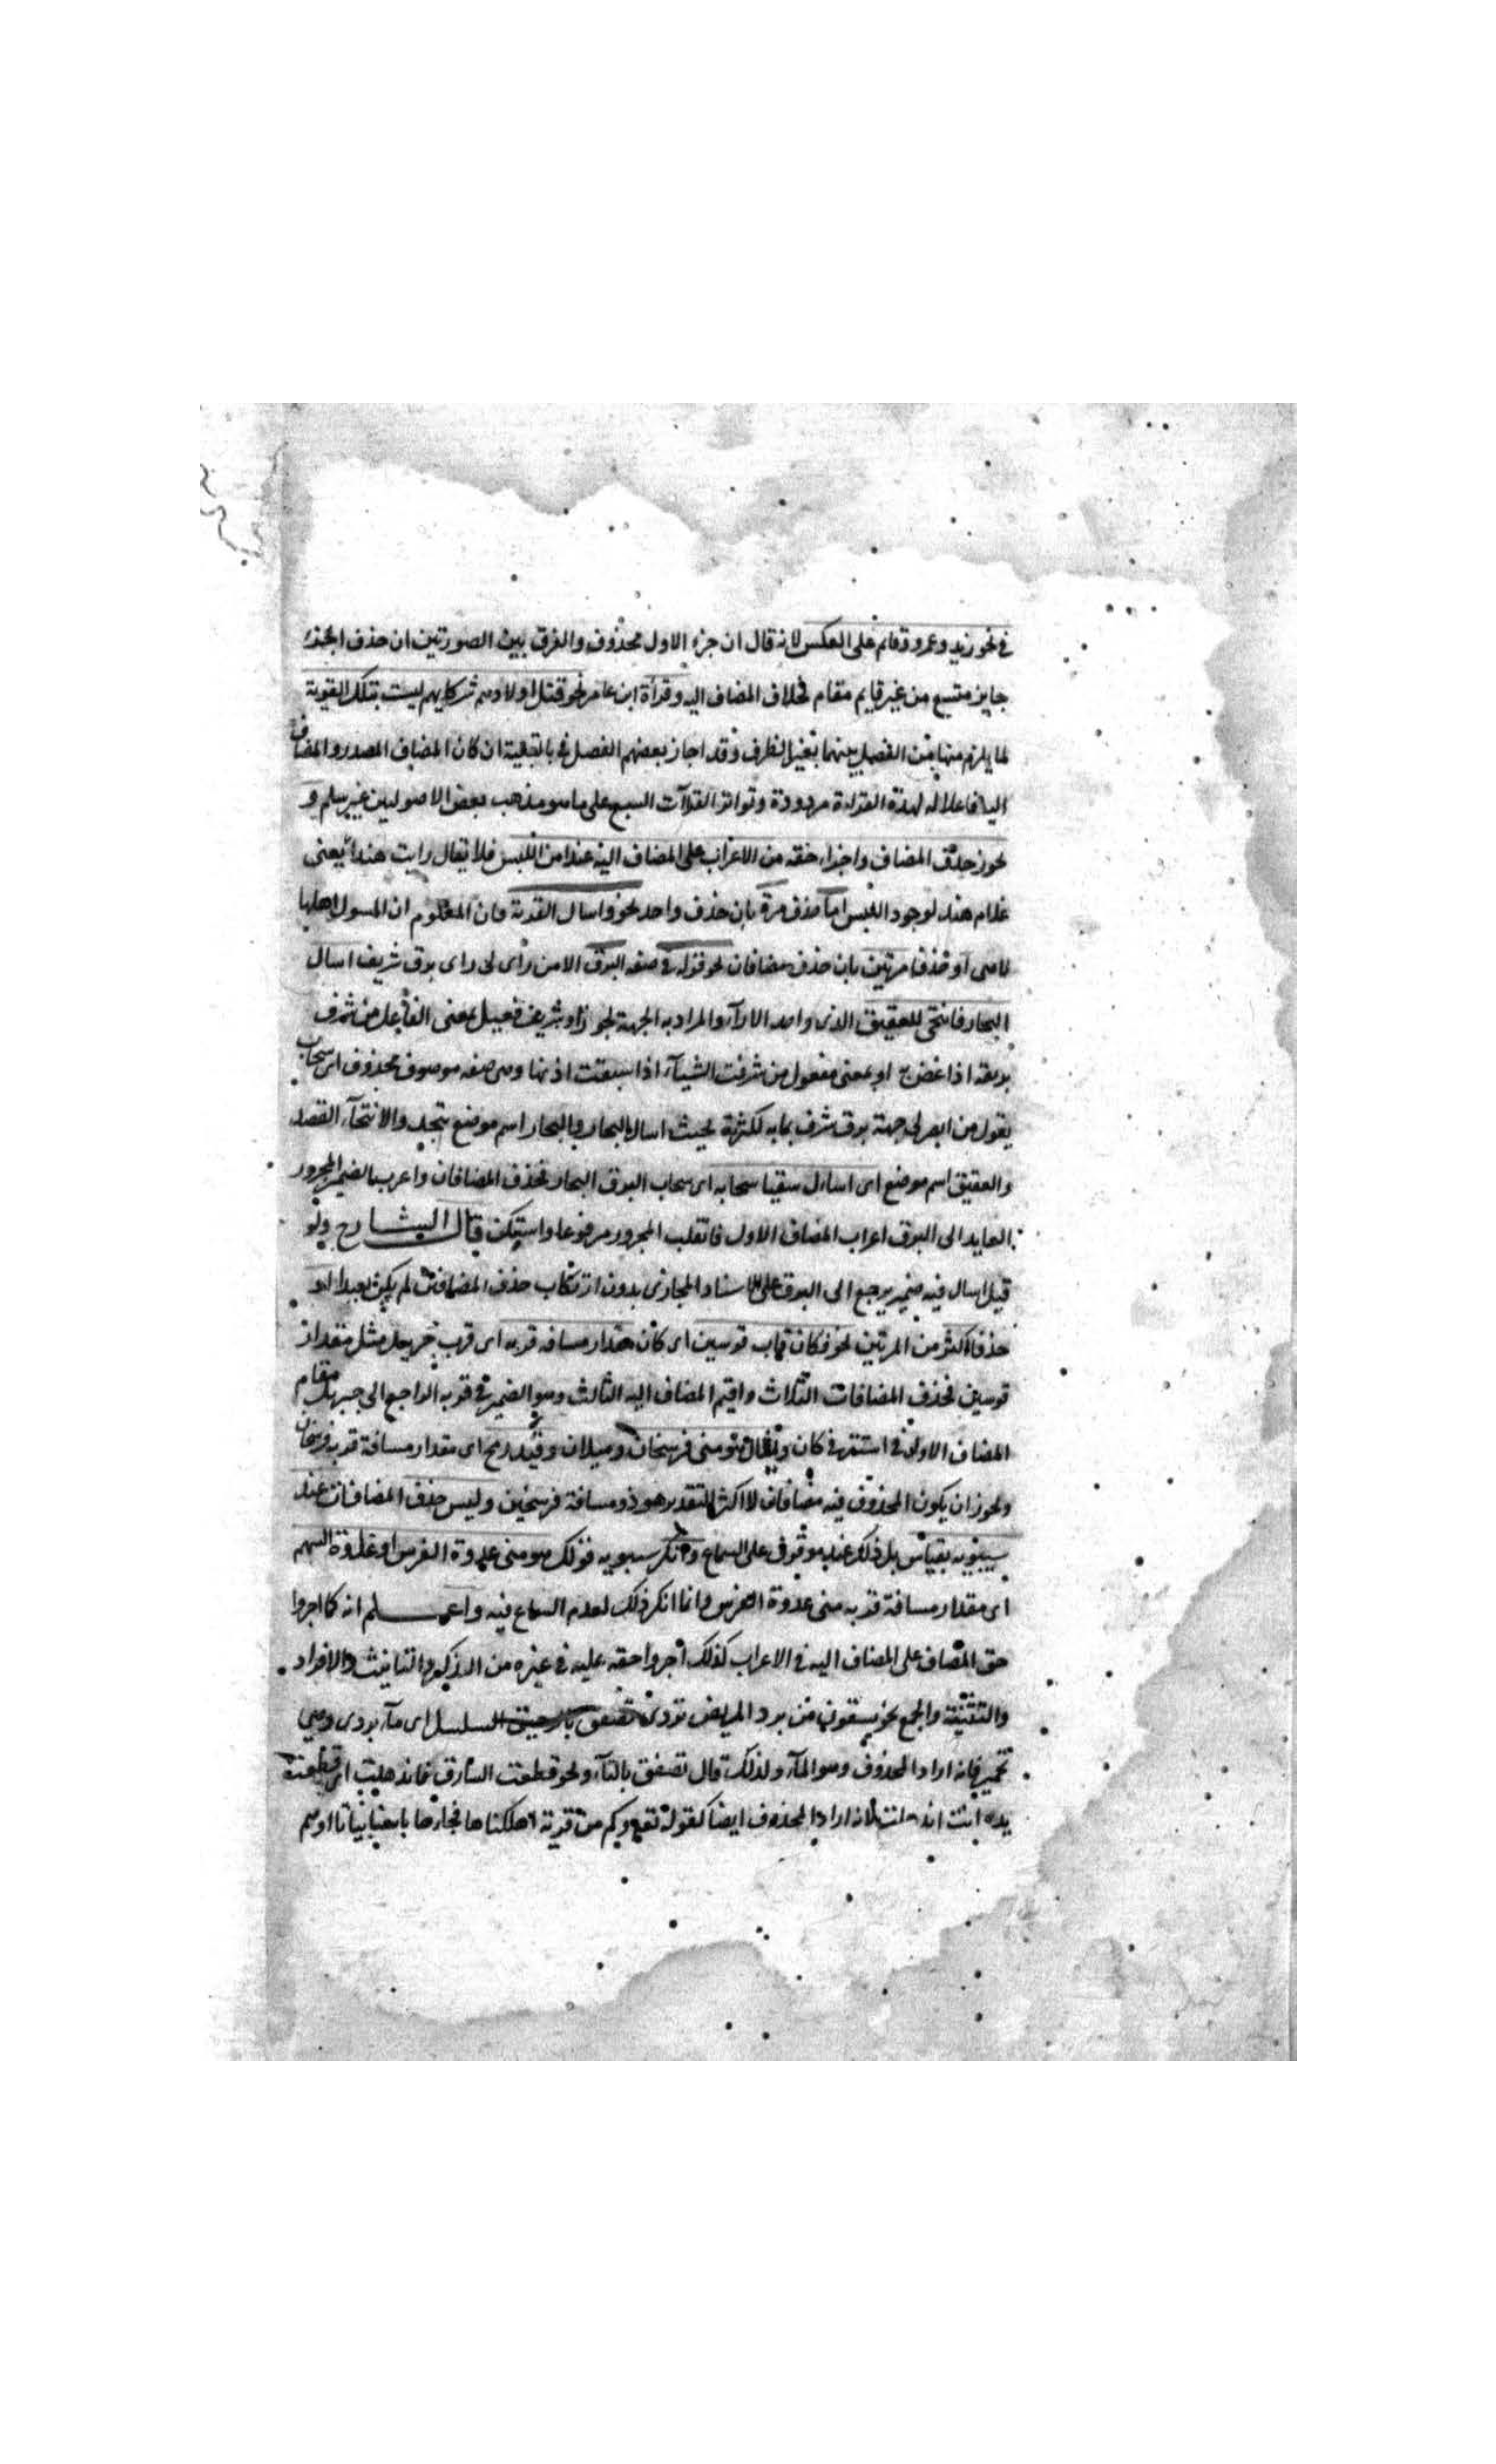 في نحو زيد وعمرو قائم على العكس لانه قال ان جزء الاول محذوف والفرق بين الصورتين ان حذف الجزء
جايز متسع من غير قايم مقام بخلاف المضاف اليه وقرأة ابن عامر نحو قتل اولادهم شركايهم ليست بتلك القوية
لما يلزم منها من الفصل بينهما بغير الظرف وقد اجاز بعضهم الفصل في بالقلية ان كان المضاف المصدر والمضاف
اليه فاعلا له لهذه القراءة مردودة وتواتر القراآت السبع على ما هو مذهب بعض الاصوليين غير سلم و
نحوز حذف المضاف واجراء حقه من الاعراب على المضاف اليه عند امن اللبس فلا يقال رايت هندا يعني
غلام هند لوجود اللبس اما حذف مرة بان حذف واحد نحو واسال القرية فان المعلوم ان المسول اهلها
لا هي او حذفا مرتين بان حذف مضافان نحو قوله في صفه البرق الا من رأى لى راى برق شريف اسال
البحار فانتحى للعقيق الذى واحد الارآء والمراد به الجهة نحو وشريف فعيل بمعنى الفاعل من شرف
بريقه اذا غض به او بمعنى مفعول من شرفت الشآء اذا سبقت اذنها وهى صفه موصوف محذوف اى سحاب
يقول من ابصر لى جهة برق شرف بمايه لكثرته بحيث اسال البحار والبحار اسم موضع بنجد والانتحآء القصد
والعقيق اسم موضع اى اسال سقيا سحابه اى سحاب البرق البحار فحذف المضافان واعرب الضمير المجرور
العايد الى البرق اعراب المضاف الاول فانقلب المجرور مرفوعا واستكن قال الشارح ولو
قيل اسال فيه ضمير يرجع الى البرق على الاسناد المجازى بدون ارتكاب حذف المضافين لم يكن بعيدا او
حذفا اكثر من المرتين نحو فكان قاب قوسين اى كان مقدار مسافه قربه اى قرب جبريل مثل مقدار
قوسين فحذف المضافات الثلاث واقيم المضاف اليه الثالث وهو الضمير في قربه الراجع الى جبريل مقام
المضاف الاول في استتر في كان ويقال هو منى فرسخان وميلان وقيد رمح اى مقدار مسافة قربه فرسخان
ونحوز ان يكون المحذوف فيه مضافان لا اكثر التقدير هو ذو مسافة فرسخين وليس حذف المضافات عند
سيبويه بقياس بل ذلك عنده موقوف على السماع وانكر سيبويه قولك هو منى عدوة الفرس او غلوة السهم
اى مقدار مسافة قربه منى عدوة الفرس وانما انكر ذلك لعدم السماع فيه واعلم انه كما اجروا
حق المضاف على المضاف اليه في الاعراب كذلك اجروا حقه عليه في غيره من التذكير والتانيث والافراد
والتثنية والجمع نحو يسقون من برد البريص بردى تصفق بالرحيق السلسل اى مآء بردى وهي
فانه اراد المحذوف وهو المآء ولذلك قال تصفق بالتآء ونحو قطعت السارق فاندملت اى قطعت
يده انث اندملت لانه اراد المحذوف ايضا كقوله تع وكم من قرية اهلكناها فجاءها باسنا بياتا او هم